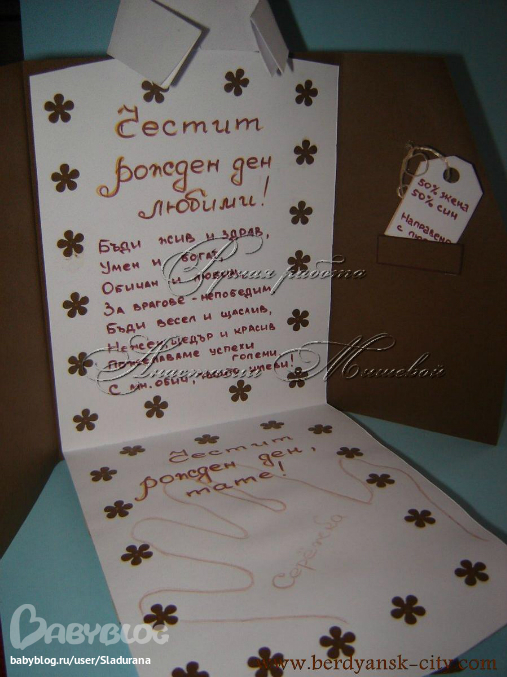 Честит
рожден ден
любими!
Бъди жив и здрав,
Умен и богат,
Обичан и любим,
За врагове - непобедим
Бъди весел и щаслив,
Нежен, щедър и красив
Пожелаваме успехи
големи,
С
50% жена
50% син
Направено
с
Ручная работа
Анастасии Мишевой
Честит
рожден ден,
тате!
Серёжка
BABYBLOG
babyblog.ru/user/Sladurana
www.berdyansk-city.com